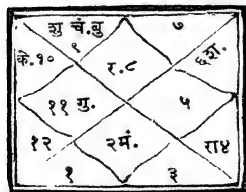 शु चं. बु
९
७
के. १०
र. ८
६श.
११ गु.
५
१२
२मं.
रा४
१
३